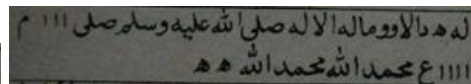 له ه دالاوومالها الاله صلى الله عليه وسلم صلى ااا م
اااا ع محمد الله محمد الله ه ه